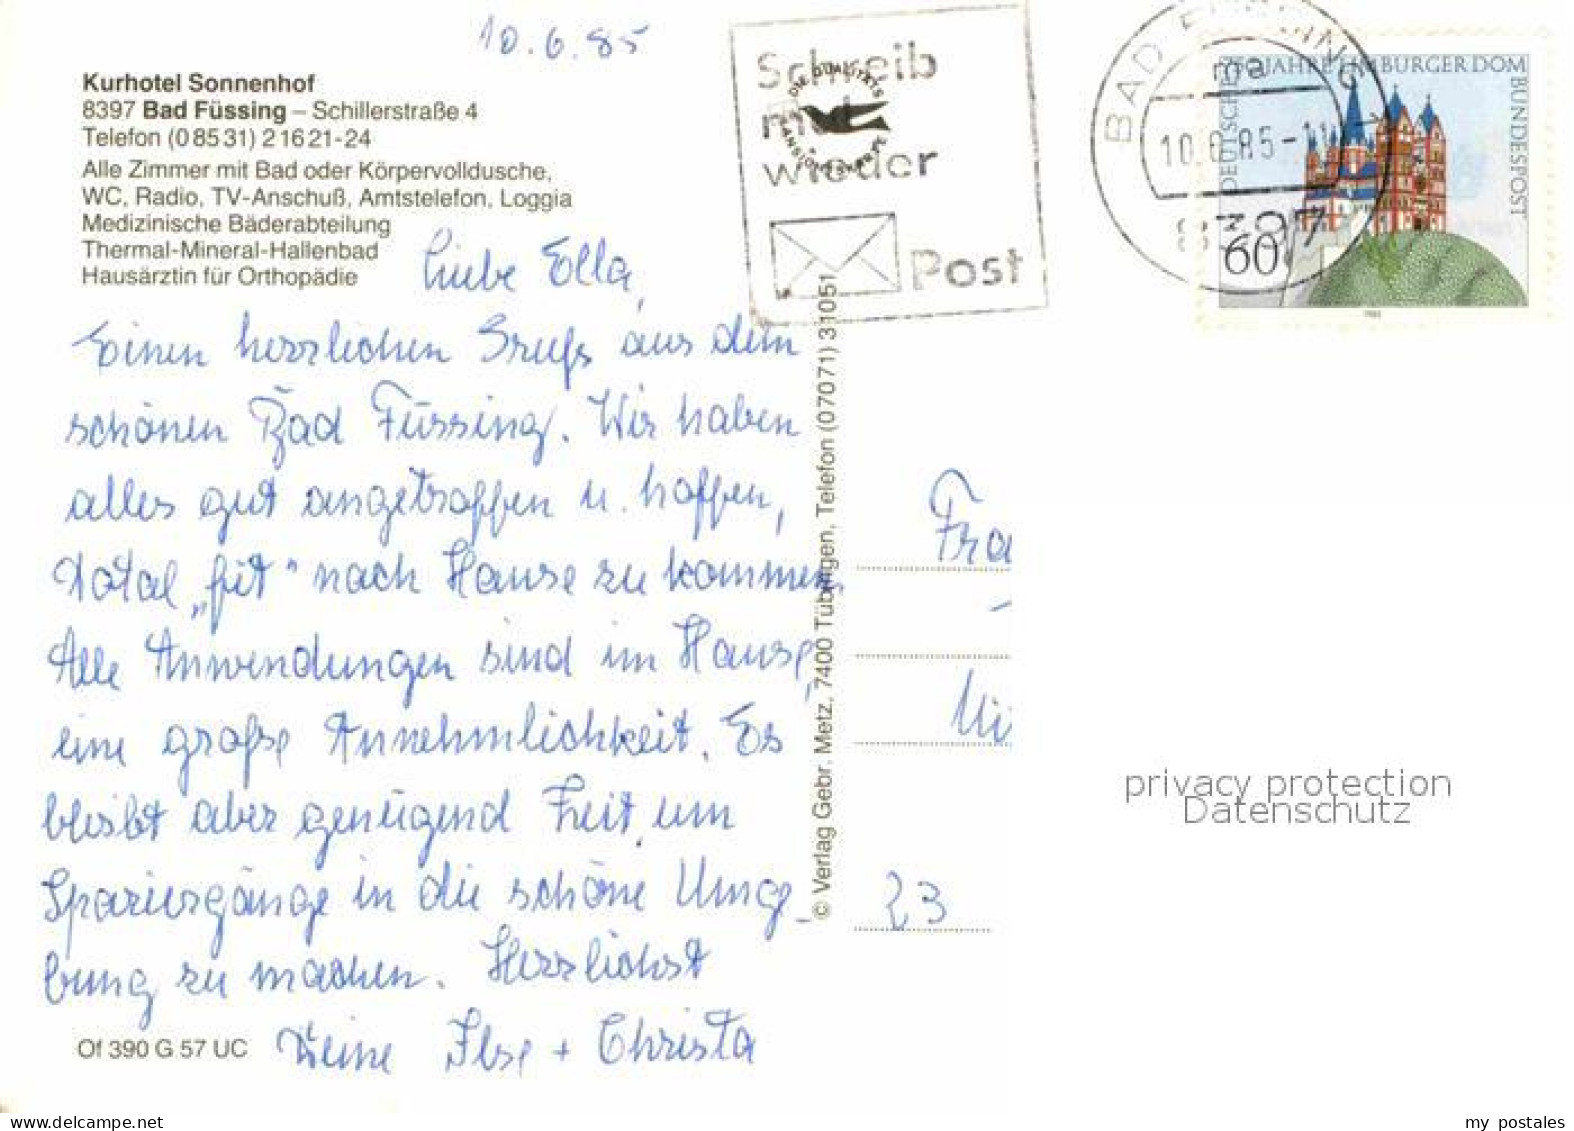 10.6.85
Kurhotel Sonnenhof
8397 Bad Füssing – Schillerstraße 4
Telefon (0 85 31) 2 16 21-24
Alle Zimmer mit Bad oder Körpervolldusche,
WC, Radio, TV-Anschuß, Amtstelefon, Loggia
Medizinische Bäderabteilung
Thermal-Mineral-Hallenbad
Hausärztin für Orthopädie
Liebe Ella,
Einen herrlichen Gruß aus dem
schönen Bad Füssing. Wir haben
alles gut angetroffen u. hoffen,
total „fit“ nach Hause zu kommen.
Alle Anwendungen sind im Hause,
eine große Annehmlichkeit. Es
bleibt aber genügend Zeit, um
Spaziergänge in die schöne Umge-
bung zu machen. Herzlichst
Deine Ilse + Christa
Of 390 G 57 UC
© Verlag Gebr. Metz, 7400 Tübingen, Telefon (07071) 31051
Schreib
mal
wieder
Post
BAD FÜSSING
ma
10.6.85-11
8397
750 JAHRE LIMBURGER DOM
DEUTSCHE
BUNDESPOST
60
1985
Fra
23
privacy protection
Datenschutz
my postales